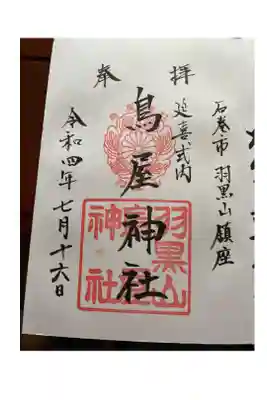 石巻市 羽黒山鎮座
奉拝
延喜式内
鳥屋神社
令和四年七月十六日
羽黒山
神社